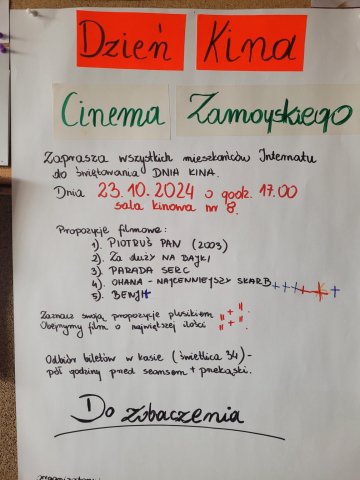 Dzień Kina
Cinema Zamoyskiego
Zaprasza wszystkich mieszkańców Internatu
do świętowania DNIA KINA.
Dnia 23.10.2024 o godz. 17.00
sala kinowa nr 8.
Propozycje filmowe:
1). PIOTRUŚ PAN (2003)
2). Za duży na bajki
3). PARADA SERC
4). OHANA - NAJCENNIEJSZY SKARB +++++++
5). BENJI+
Zaznacz swoją propozycję plusikiem "+".
Obejrzymy film o największej ilości "+".
Odbiór biletów w kasie (świetlica 34) -
pół godziny przed seansem + przekąski.
Do zobaczenia